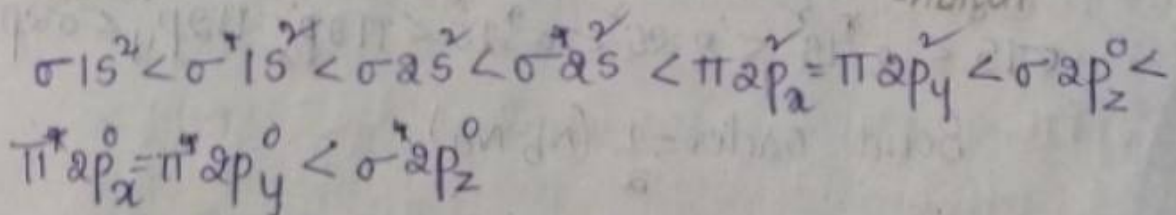 σ1s² < σ*1s² < σ2s² < σ*2s² < π2pₓ² = π2p_y² < σ2p_z⁰ <
π*2pₓ⁰ = π*2p_y⁰ < σ*2p_z⁰